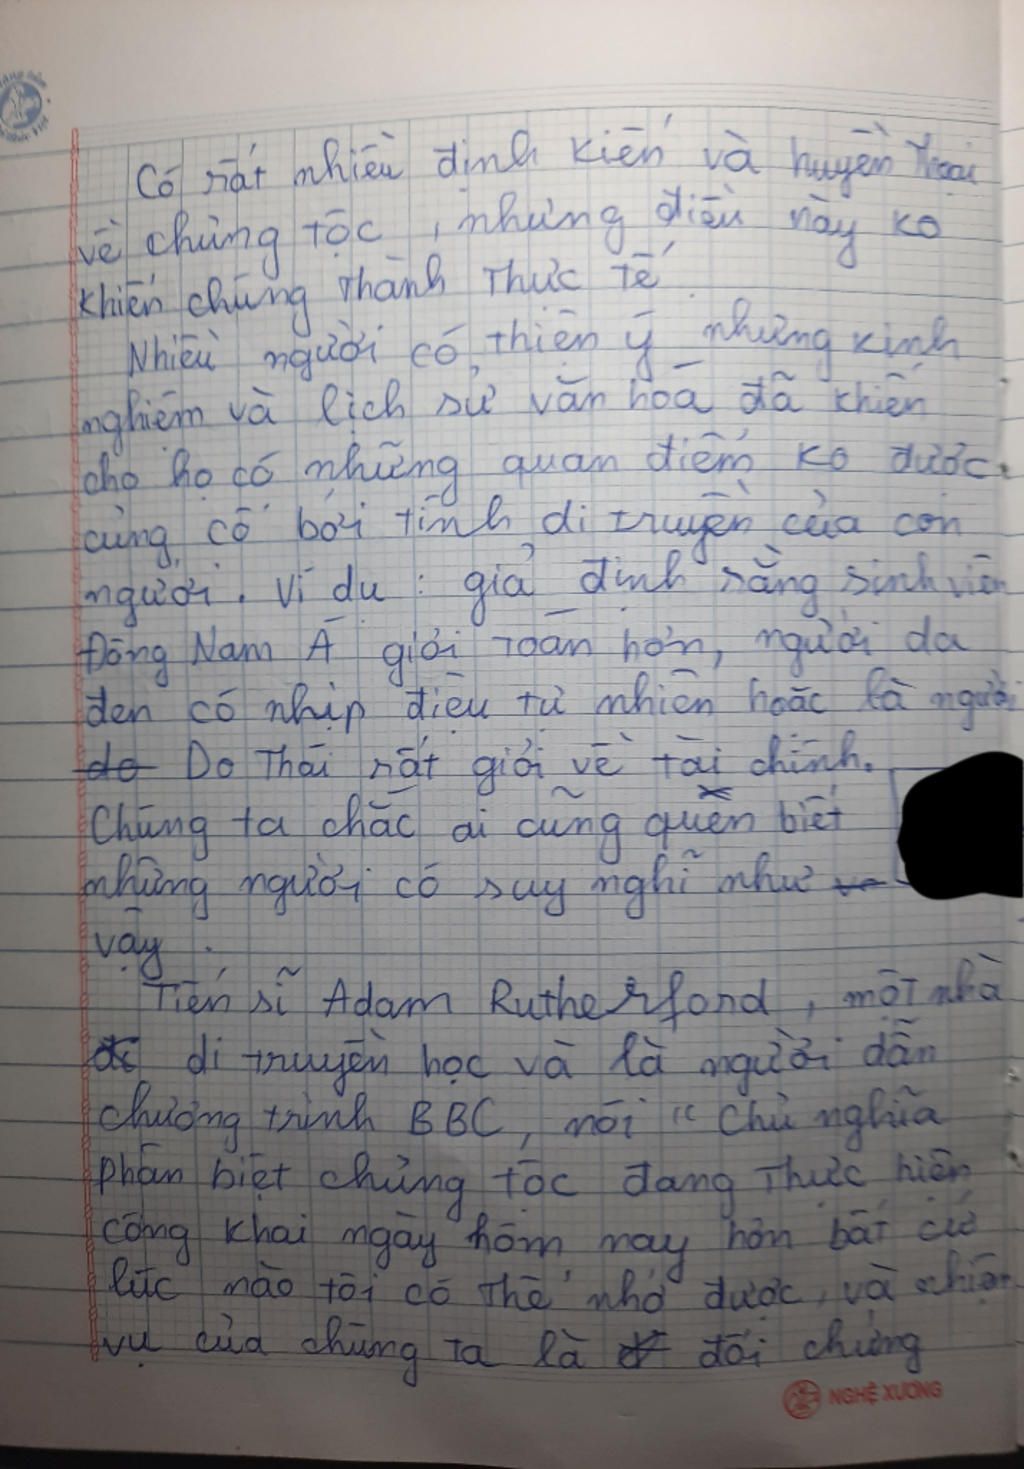 Có rất nhiều định kiến và huyền thoại
về chủng tộc, nhưng điều này ko
khiến chúng thành thực tế.
Nhiều người có thiện ý những kinh
nghiệm và lịch sử văn hoá đã khiến
cho họ có những quan điểm ko được
củng cố bởi tính di truyền của con
người. Ví dụ: giả định rằng sinh viên
Đông Nam Á giỏi toán hơn, người da
đen có nhịp điệu tự nhiên hoặc là người
do Do Thái rất giỏi về tài chính.
Chúng ta chắc ai cũng quen biết
những người có suy nghĩ như
vậy.
Tiến sĩ Adam Rutherford, một nhà
di truyền học và là người dẫn
chương trình BBC, nói "Chủ nghĩa
phân biệt chủng tộc đang thực hiện
công khai ngày hôm nay hơn bất cứ
lúc nào tôi có thể nhớ được, và nhiệm
vụ của chúng ta là đối chứng
NGHỆ XƯƠNG